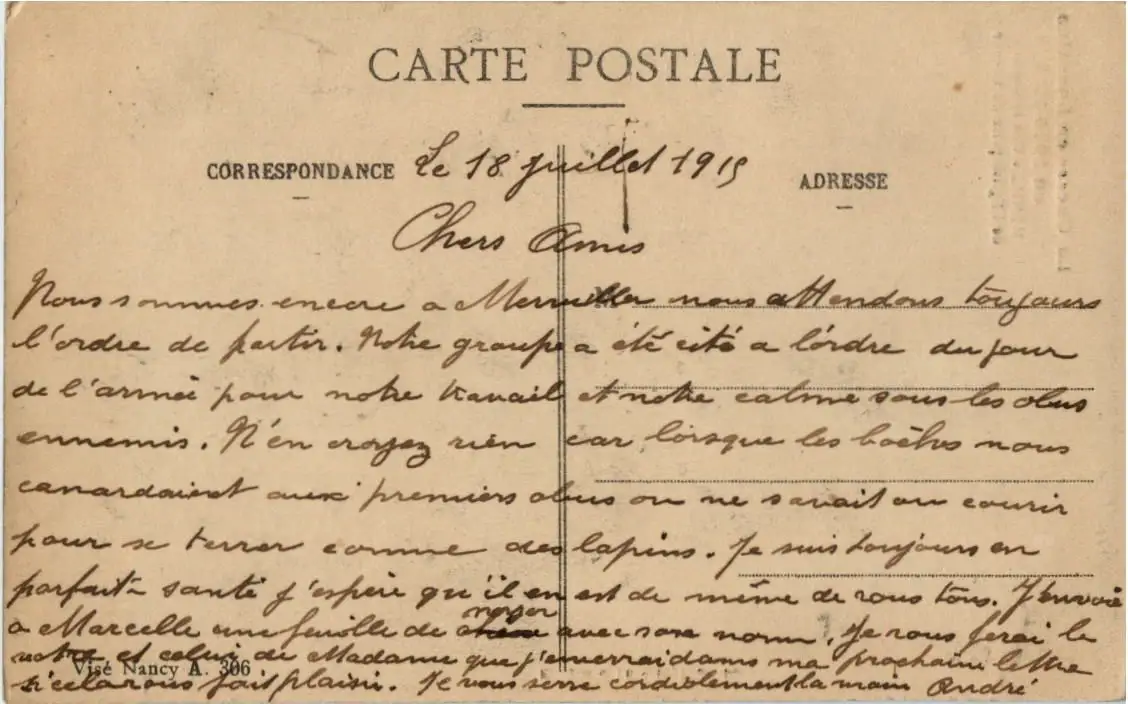 CARTE POSTALE
CORRESPONDANCE Le 18 juillet 1915 ADRESSE
Chers Amis
Nous sommes encore a Merviller nous attendons toujours
l'ordre de partir. Notre groupe a été cité a l'ordre du jour
de l'armée pour notre travail et notre calme sous les obus
ennemis. N'en croyez rien car lorsque les boches nous
canardaient aux premiers obus on ne savait ou courir
pour se terrer comme des lapins. Je suis toujours en
parfaite santé j'espère qu'il en est de même de vous tous. J'envoie
a Marcelle une feuille de noyer avec son nom. Je vous ferai le
votre et celui de Madame que j'enverrai dans ma prochaine lettre
si cela vous fait plaisir. Je vous serre cordialement la main André
Visé Nancy A. 306